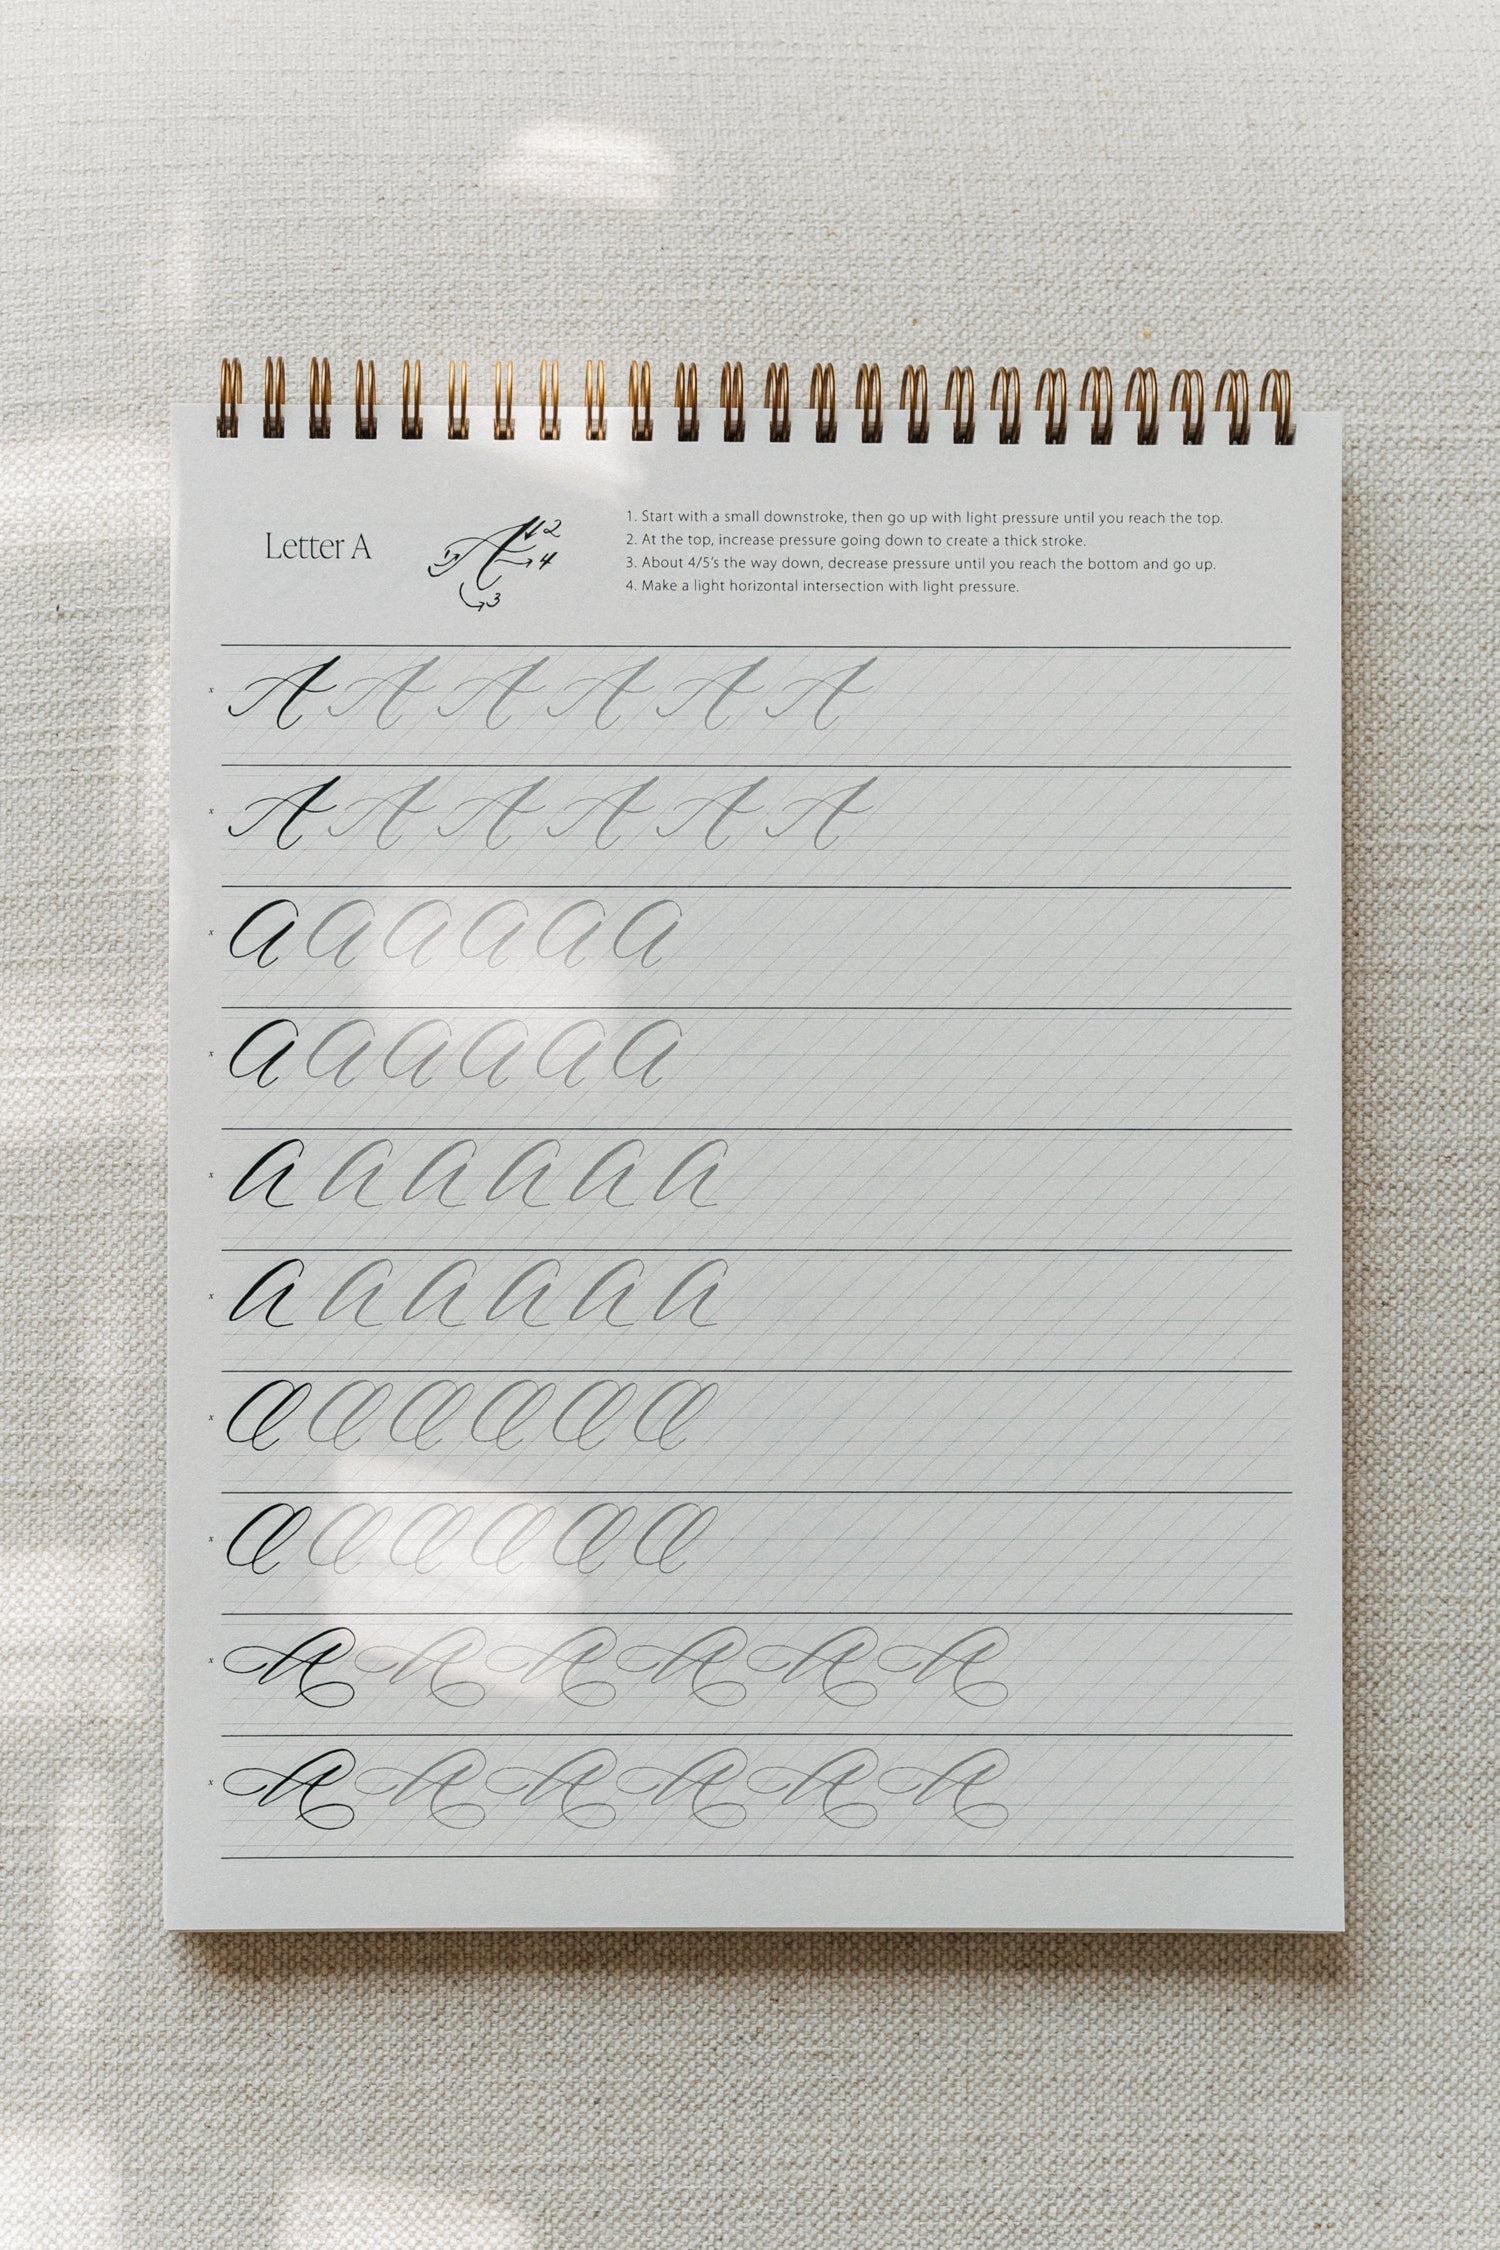 Letter A
1 2 3 4
1. Start with a small downstroke, then go up with light pressure until you reach the top.
2. At the top, increase pressure going down to create a thick stroke.
3. About 4/5's the way down, decrease pressure until you reach the bottom and go up.
4. Make a light horizontal intersection with light pressure.
x A A A A A A
x A A A A A A
x a a a a a a
x a a a a a a
x A A A A A A
x A A A A A A
x a a a a a a
x a a a a a a
x A A A A A A
x A A A A A A